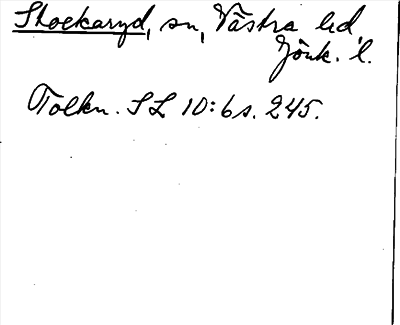 Stockaryd, sn, Västra hd,
Jönk. l.
Tolkn. SL 10:6 s. 245.